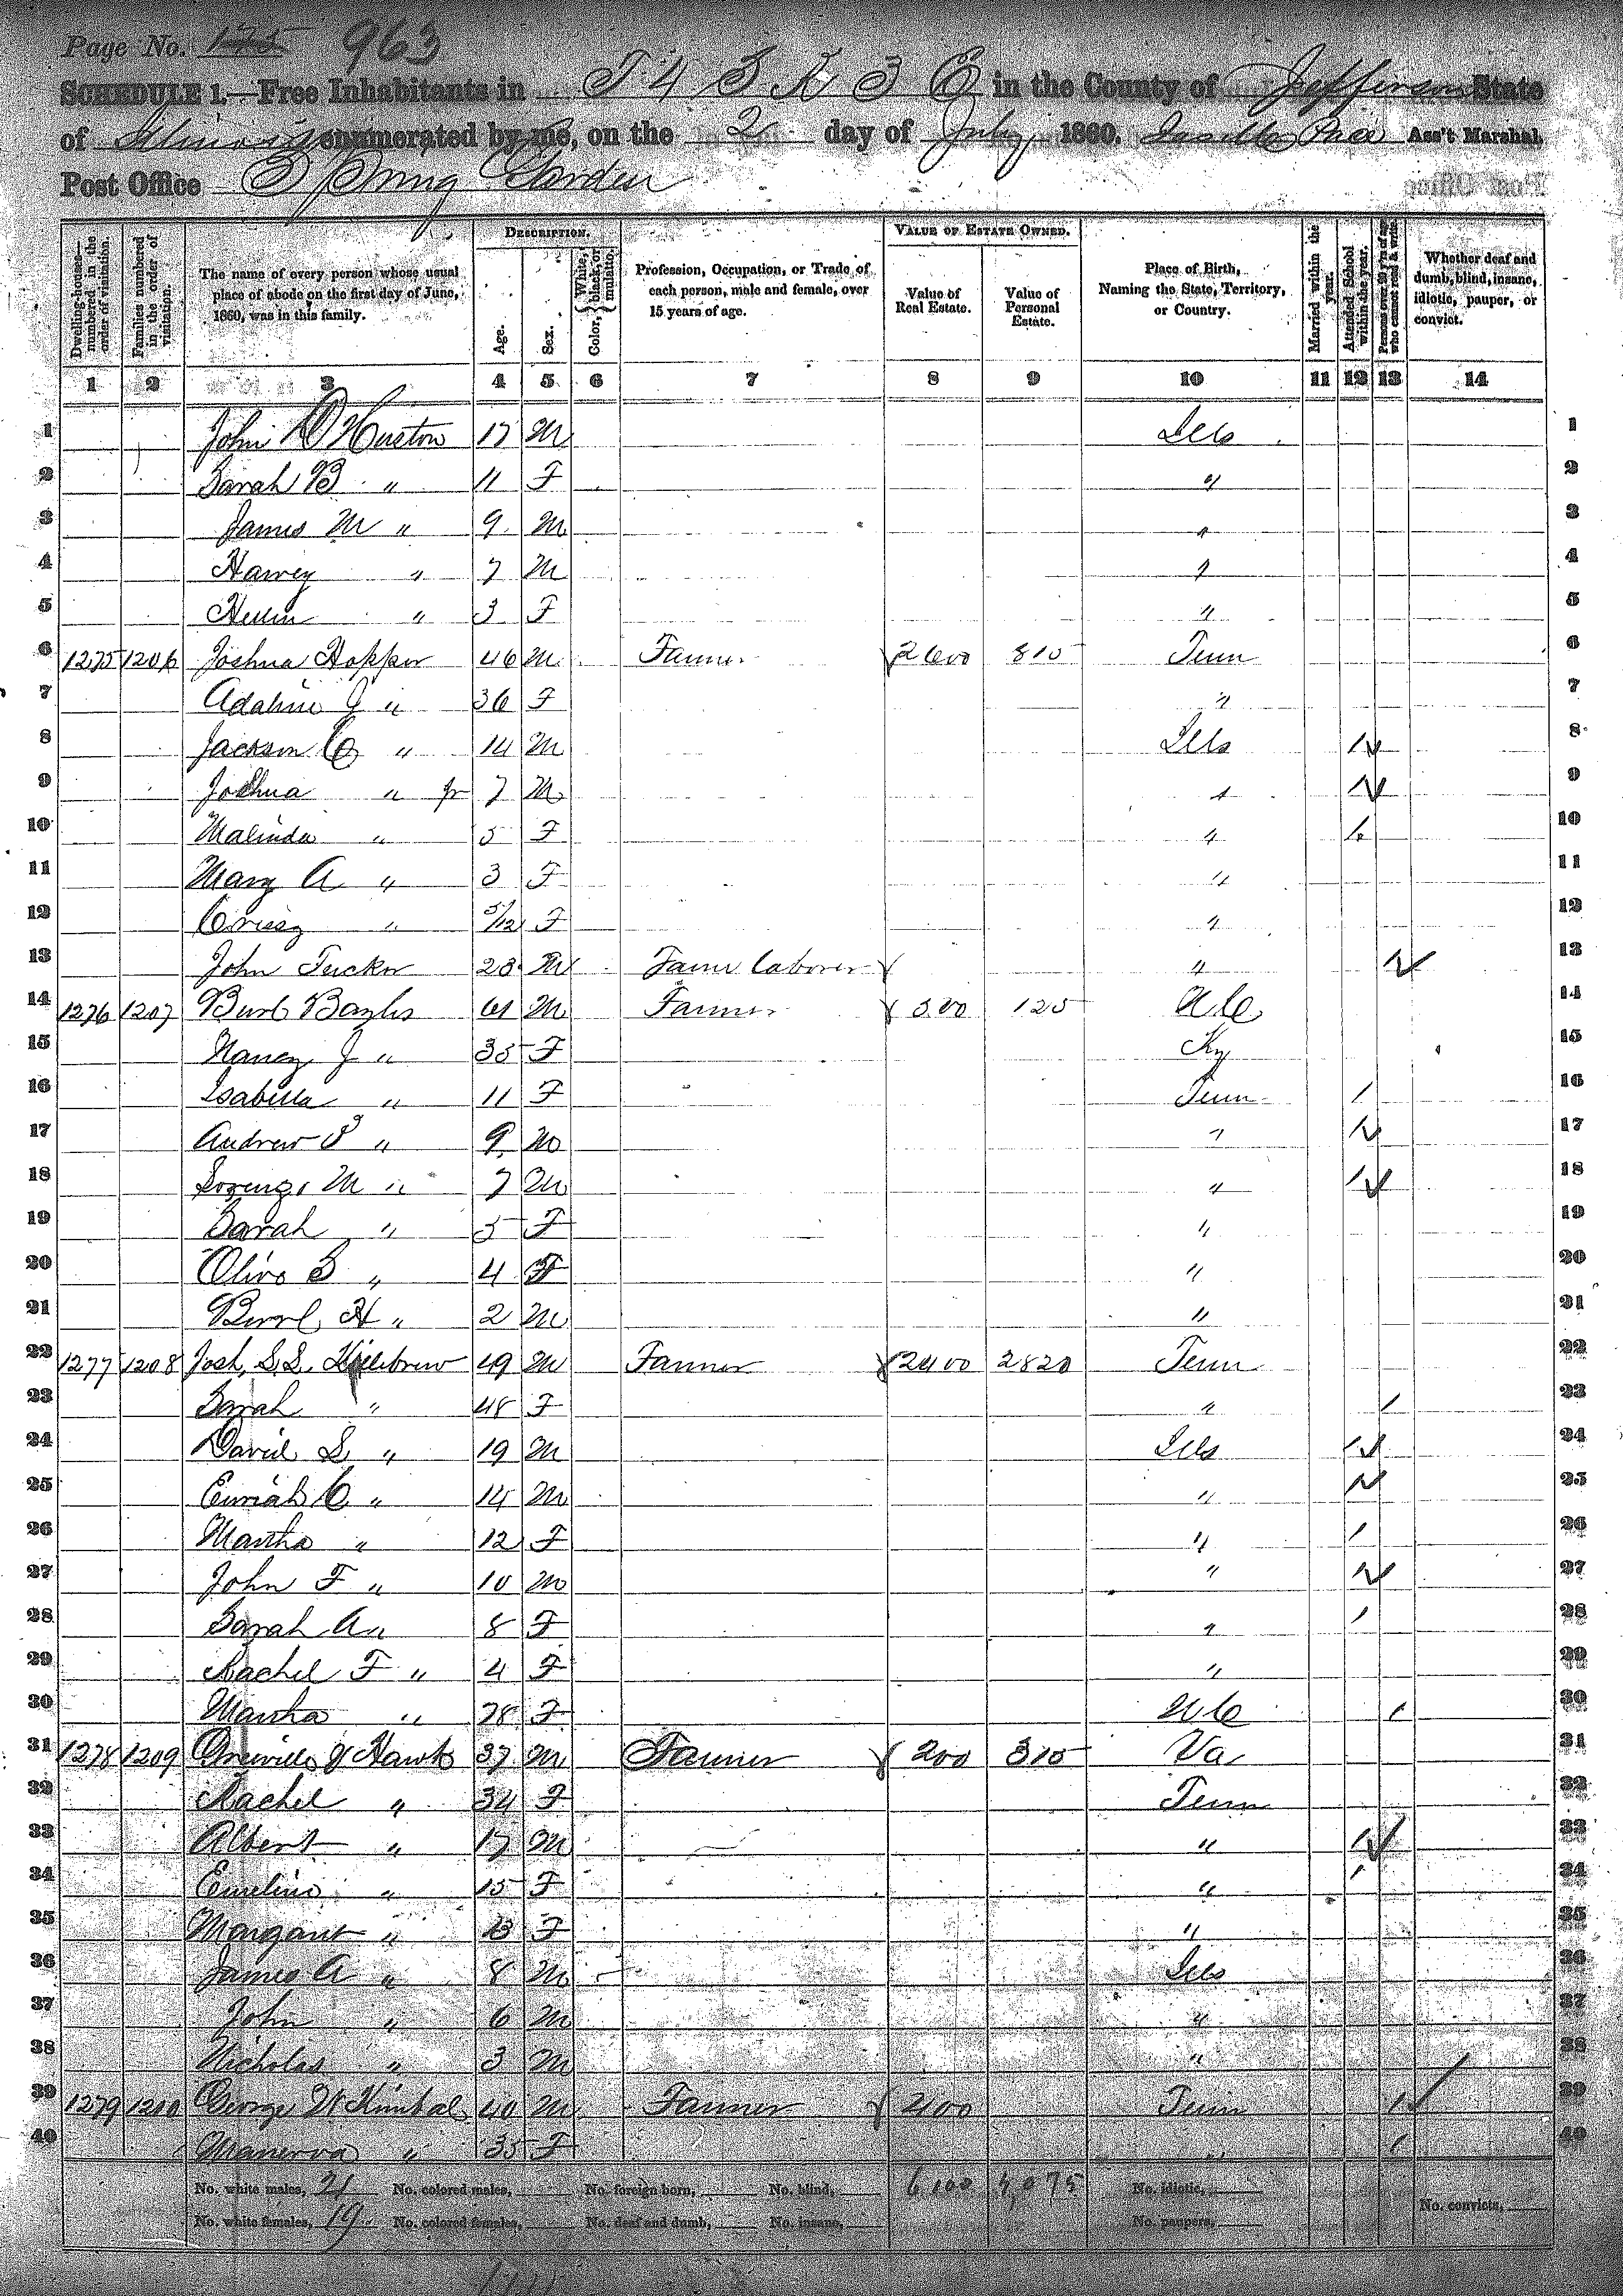 Page No. 175 963
SCHEDULE 1.—Free Inhabitants in T 4 S R 3 E in the County of Jefferson State
of Illinois enumerated by me, on the 2 day of July 1860. Pace Ass't Marshal.
Post Office Spring Garden
Dwelling-houses—numbered in the order of visitation.
Families numbered in the order of visitation.
The name of every person whose usual place of abode on the first day of June, 1860, was in this family.
DESCRIPTION.
Age.
Sex.
Color, { White, black, or mulatto.
Profession, Occupation, or Trade of each person, male and female, over 15 years of age.
VALUE OF ESTATE OWNED.
Value of Real Estate.
Value of Personal Estate.
Place of Birth, Naming the State, Territory, or Country.
Married within the year.
Attended School within the year.
Persons over 20 y'rs of age who cannot read & write.
Whether deaf and dumb, blind, insane, idiotic, pauper, or convict.
1 2 3 4 5 6 7 8 9 10 11 12 13 14
1 John D Hueton 17 M Ills 1
2 Sarah B " 11 F " 2
3 James M " 9 M " 3
4 Harvey " 7 M " 4
5 Hellen " 3 F " 5
6 1275 1206 Joshua Hopper 46 M Farmer 2600 815 Tenn 6
7 Adaline J " 36 F " 7
8 Jackson C " 14 M Ills / 8
9 Joshua " Jr 7 M " / 9
10 Malinda " 5 F " / 10
11 Mary A " 3 F " 11
12 Crissy " 5/12 F " 12
13 John Tucker 23 M Farm laborer " / 13
14 1276 1207 Burl Bayles 61 M Farmer 500 125 N C 14
15 Nancy J " 35 F Ky 15
16 Isabella " 11 F Tenn / 16
17 Andrew J " 9 M " / 17
18 Lorenzo M " 7 M " / 18
19 Sarah " 5 F " 19
20 Olive S " 4 F " 20
21 Burl H " 2 M " 21
22 1277 1208 Josh. S.S. Killebrew 49 M Farmer 2400 2820 Tenn 22
23 Sarah " 48 F " / 23
24 David S " 19 M Ills / 24
25 Euriah C " 14 M " / 25
26 Martha " 12 F " / 26
27 John F " 10 M " / 27
28 Sarah A " 8 F " / 28
29 Rachel F " 4 F " 29
30 Martha " 78 F N C / 30
31 1278 1209 J Hawk 37 M Farmer 200 315 Va 31
32 Rachel " 34 F Tenn 32
33 Albert " 17 M " / 33
34 Emeline " 15 F " / 34
35 Margaret " 13 F " 35
36 James A " 8 M Ills 36
37 John " 6 M " 37
38 Nicholas " 3 M " 38
39 1279 1210 George W Kimbal 40 M Farmer 400 Tenn / 39
40 Manerva " 35 F " / 40
No. white males, 21 No. colored males, No. foreign born, No. blind, 6100 4,075 No. idiotic, No. convicts,
No. white females, 19 No. colored females, No. deaf and dumb, No. insane, No. paupers,